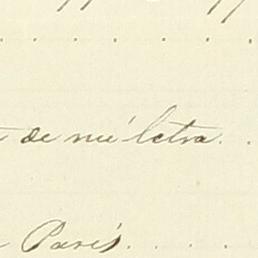 de mi letra. .
Paris. . . .